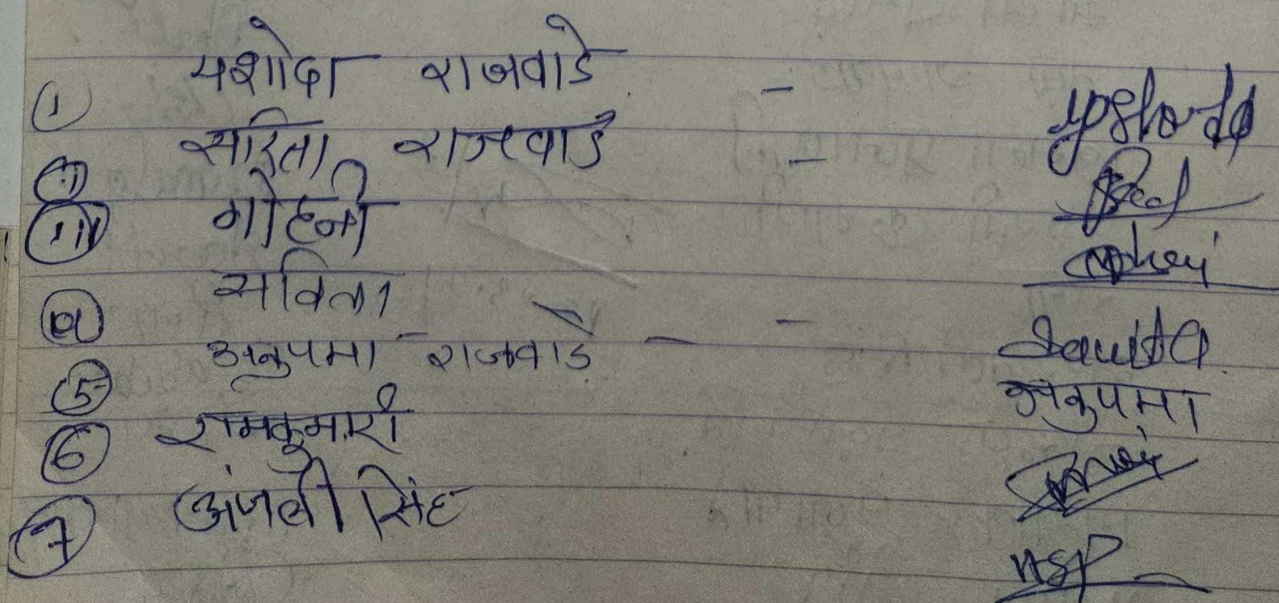 ① यशोदा राजवाडे - yashoda
② सरिता राजवाडे -
③ मोहनी
④ सविता - Savita
⑤ अनुपमा राजवाडे - अनुपमा
⑥ रामकुमारी
⑦ अंजली सिंह